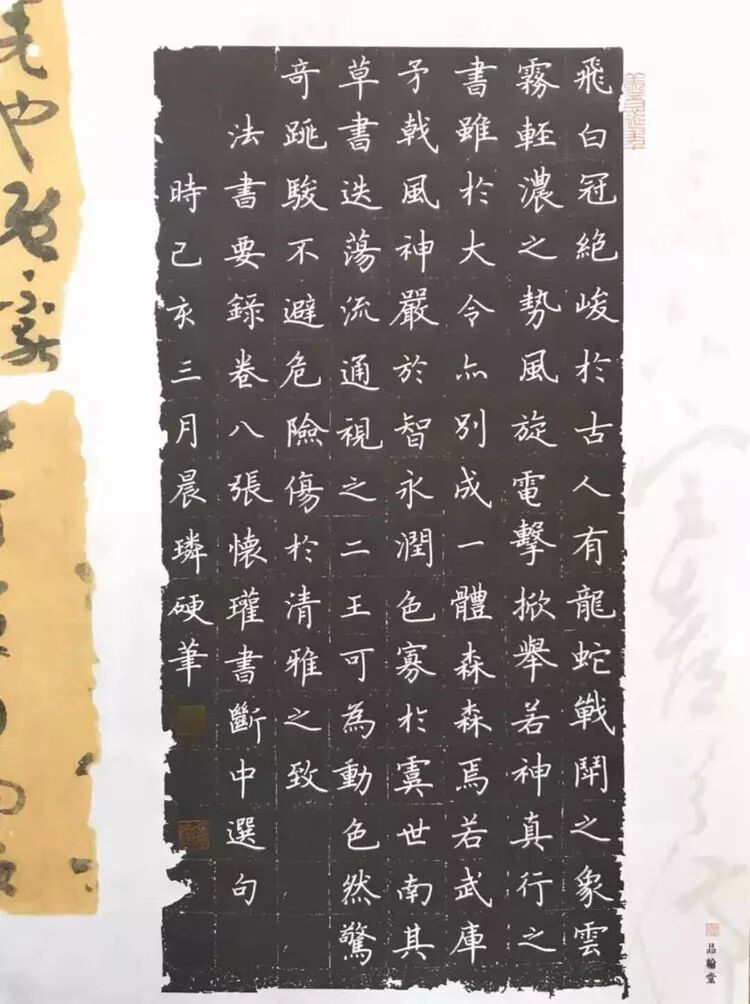 飛白冠絶峻於古人有龍蛇戰鬪之象雲
霧輕濃之勢風旋電擊掀舉若神真行之
書雖於大令亦別成一體森森焉若武庫
矛戟風神嚴於智永潤色寡於虞世南其
草書迭蕩流通視之二王可為動色然驚
奇跳駿不避危險傷於清雅之致
法書要錄卷八張懷瓘書斷中選句
時己亥三月晨璘硬筆
品翰堂